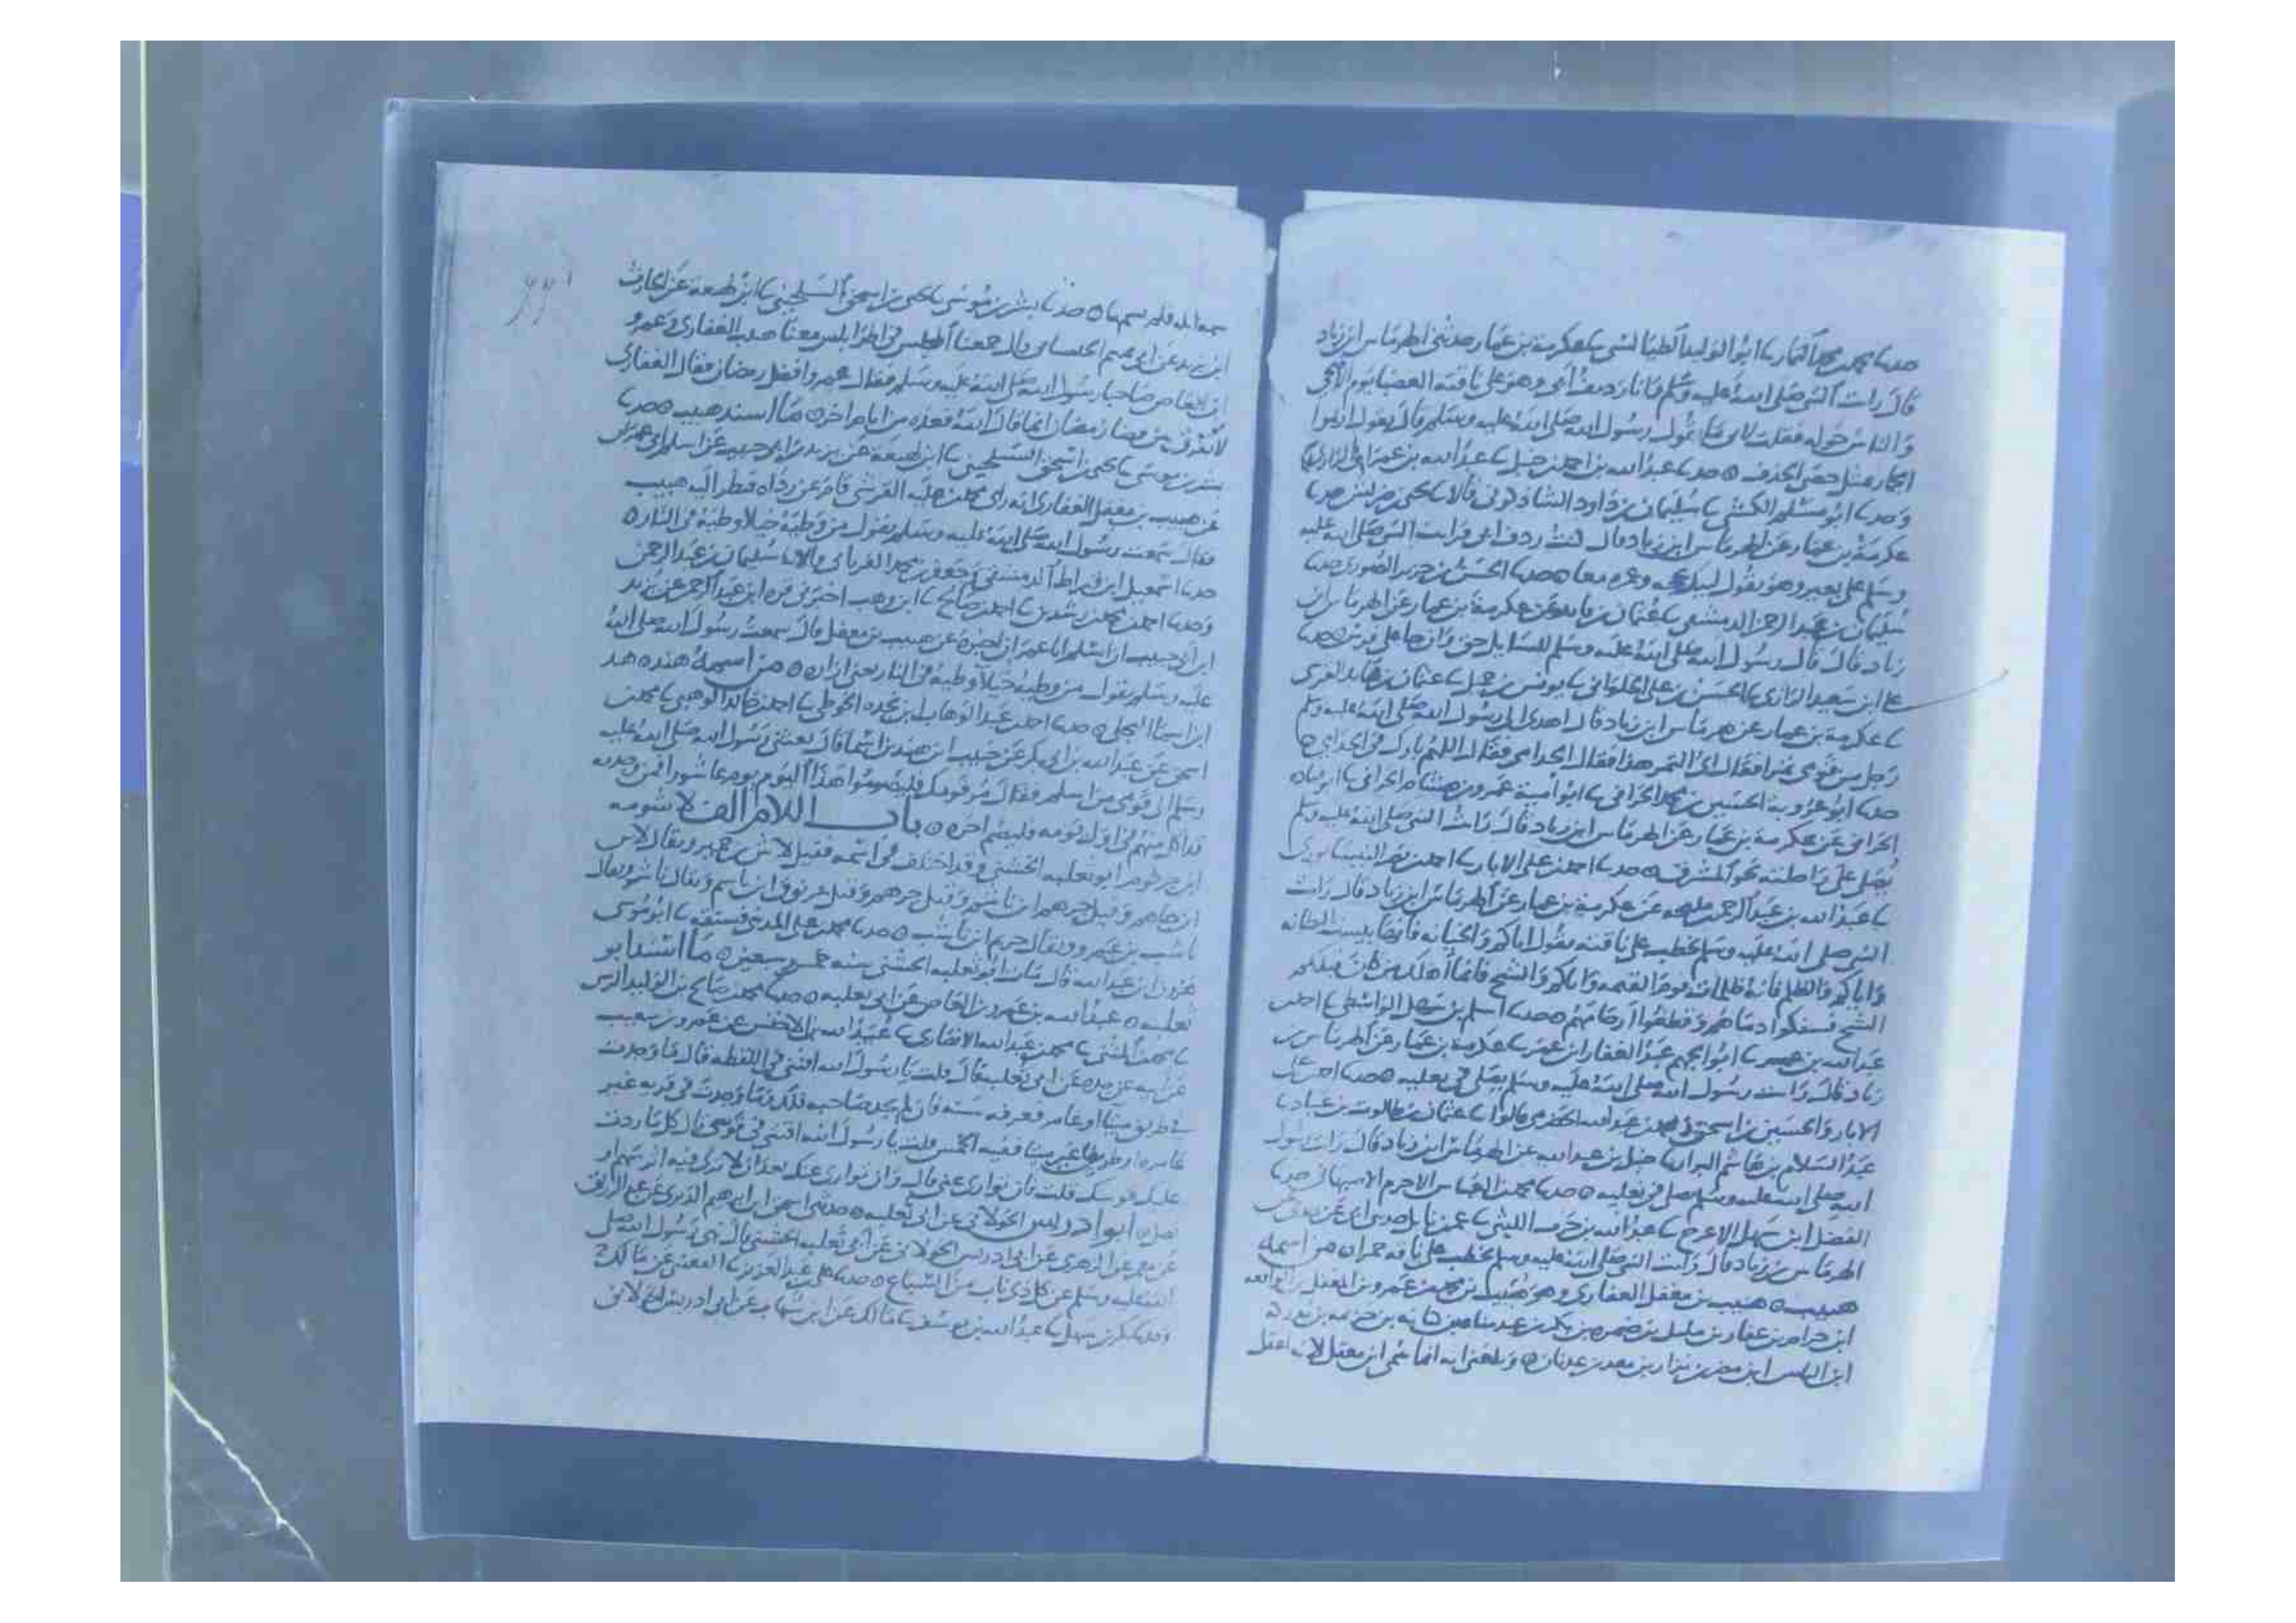 حدثنا محمد بن محمد التمار نا ابو الوليد الطيالسي نا عكرمة بن عمار حدثني الهرماس ابن زياد
قال رات النبي صلى الله عليه وسلم وانا رديف ابي وهو على ناقته العضبا يوم الاضحى
والناس حوله فقلت لابي ما يقول رسول الله صلى الله عليه وسلم قال يقول ارموا
الجمار بمثل حصى الخذف ه حدثنا عبد الله بن احمد بن حنبل نا عبد الله بن عمران الرازي
وحدثنا ابو مسلم الكشي نا سليمان بن داود الشاذكوني قالا نا يحيى بن ضريس حدثنا
عكرمة بن عمار عن الهرماس ابن زياد قال كنت ردف ابي فرايت النبي صلى الله عليه
وسلم على بعير وهو يقول لبيك بحجه وعمره معا ه حدثنا الحسن بن جرير الصوري حدثنا
سليمان بن عبد الرحمن الدمشقي نا عثمان بن فايد عن عكرمة بن عمار عن الهرماس ابن
زياد قال قال رسول الله صلى الله عليه وسلم للسايل حق وان جا على فرس ه حدثنا
علي ابن سعيد الرازي نا الحسن بن علي الحلواني نا يونس بن عثمان بن فايد القرشي
نا عكرمة بن عمار عن هرماس ابن زياد قال اهدى الى رسول الله صلى الله عليه وسلم
رجل من قومي تمرا فقال اي التمر هذا فقال الجذامي فقال اللهم بارك في الجذامي ه
حدثنا ابو عروبة الحسين بن محمد الحراني نا ابو امية عمرو بن هشام الحراني نا ابو قتاده
الحراني عن عكرمة بن عمار عن الهرماس ابن زياد قال رات النبي صلى الله عليه وسلم
يصلي على راحلته نحو المشرق ه حدثنا احمد بن علي الابار نا احمد بن نصر النيسابوري
نا عبد الله بن عبد الرحمن بن مليحه عن عكرمة بن عمار عن الهرماس ابن زياد قال رات
النبي صلى الله عليه وسلم يخطب على ناقته يقول اياكم والخيانه فانها بيست البطانه
واياكم والظلم فانه ظلمات يوم القيمه واياكم والشح فانما اهلك من كان قبلكم
الشح فسفكوا دماهم وقطعوا ارحامهم ه حدثنا اسلم بن سهل الواسطي نا احمد بن
عبد الله بن نا ابو الجهم عبد الغفار ابن عمر نا عكرمة بن عمار عن الهرماس بن
زياد قال رات رسول الله صلى الله عليه وسلم يصلي في نعليه ه حدثنا احمد بن علي
الابار والحسين بن اسحق ومحمد بن عبد الله الحضرمي قالوا نا عثمان بن طالوت بن عباد نا
عبد السلام بن هاشم البزار نا حنبل بن عبد الله عن الهرماس ابن زياد قال رات رسول
الله صلى الله عليه وسلم يصلي في نعليه ه حدثنا محمد بن العباس الاخرم الاصبهاني حدثنا
الفضل ابن سهل الاعرج نا عبد الله بن حرب الليثي نا عمر بن حدثني ابي عن
الهرماس بن زياد قال رات النبي صلى الله عليه وسلم يخطب على ناقه حمرا ه من اسمه
هبيب ه هبيب بن مغفل الغفاري وهو هبيب بن محمد بن عمرو بن المغفل بن الواقعه
ابن حرام بن غفار بن مليل بن ضمره بن بكر بن عبد مناه بن كنانه بن خزيمه بن مدركه
ابن الياس ابن مضر بن نزار بن معد بن عدنان ه وبلغني انه انما سمي ابن مغفل لانه اغفل
سمه ابله فلم يسمها ه حدثنا بشر بن موسى نا يحيى بن اسحق السيلحيني نا ابن لهيعة عن الحارث
ابن يزيد عن ابي قال جمعنا المجلس في اطرابلس معنا هبيب الغفاري وعمرو
ابن العاص صاحبا رسول الله صلى الله عليه وسلم فقال عمرو افصل رمضان فقال الغفاري
لا نفرق بين قضا رمضان انما قال الله فعده من ايام اخر ه ما اسند هبيب ه حدثنا
بشر بن موسى نا يحيى بن اسحق السيلحيني نا ابن لهيعة عن يزيد بن ابي حبيب عن اسلم ابي عمران
عن هبيب بن مغفل الغفاري انه راى محمد بن علبه القرشي قام يجر رداه فنظر اليه هبيب
فقال سمعت رسول الله صلى الله عليه وسلم يقول من وطيه خيلا وطيه في النار ه
حدثنا اسمعيل ابن قيراط الدمشقي وجعفر بن محمد الفريابي قالا نا سليمان بن عبد الرحمن
وحدثنا احمد بن محمد بن رشدين نا احمد بن صالح نا ابن وهب اخبرني قره ابن عبد الرحمن عن يزيد
ابن ابي حبيب ان اسلم ابا عمران اخبره عن هبيب بن مغفل قال سمعت رسول الله صلى الله
عليه وسلم يقول من وطيه خيلا وطيه في النار يعني ازاره ه من اسمه هند ه هند
ابن اسما ه حدثنا احمد بن عبد الوهاب بن نجده الحوطي نا احمد بن خالد الوهبي نا محمد بن
اسحق عن عبد الله بن ابي بكر عن حبيب ابن هند بن اسما قال بعثني رسول الله صلى الله عليه
وسلم الى قومي من اسلم فقال مر قومك فليصوموا هذا اليوم يوم عاشورا فمن وجدته
قد اكل منهم في اول يومه فليصم اخره ه باب اللام الف لاشومه
ابن جرثوم ابو ثعلبه الخشني وقد اختلف في اسمه فقيل لاشر بن حمير ويقال لاس
ابن جاهم وقيل جرهم ابن ناشم وقيل جرهم وقيل غرنوق ابن ناسم ويقال ناشر ويقال
ناشب بن عمرو ويقال جرثم ابن ناشب ه حدثنا محمد بن علي المديني فستقه نا ابو موسى
هرون ابن عبد الله قال مات ابو ثعلبه الخشني سنه خمس وسبعين ه ما اسند ابو
ثعلبه ه عبد الله بن عمرو بن العاص عن ابي ثعلبه ه حدثنا محمد بن صالح بن الوليد النرسي
نا محمد بن المثنى نا محمد بن عبد الله الانصاري نا عبيد الله بن الاخنس عن عمرو بن شعيب
عن ابيه عن جده عن ابي ثعلبه قال قلت يا رسول الله افتني في اللقطه قال ما وجدت
في طريق ميتا او عامر فعرفه سنه فان لم يجد صاحبه فلك وما وجدت في قريه غير
عامره او طريق غير ميتا ففيه الخمس قلت يا رسول الله افتني في قوسي قال كل ما ردت
عليك قوسك قلت فان توارى عني قال وان توارى عنك بعد ان لا ترى فيه اثر سهم او
نصل ه ابو ادريس الخولاني عن ابي ثعلبه ه حدثنا اسحق ابن ابراهيم الدبري عن عبد الرزاق
عن معمر عن الزهري عن ابي ادريس الخولاني عن ابي ثعلبه الخشني قال نهى رسول الله صلى
الله عليه وسلم عن كل ذي ناب من السباع ه حدثنا علي بن عبد العزيز نا القعنبي عن مالك ح
وحدثنا بكر بن سهل نا عبد الله بن يوسف نا مالك عن ابن شهاب عن ابي ادريس الخولاني